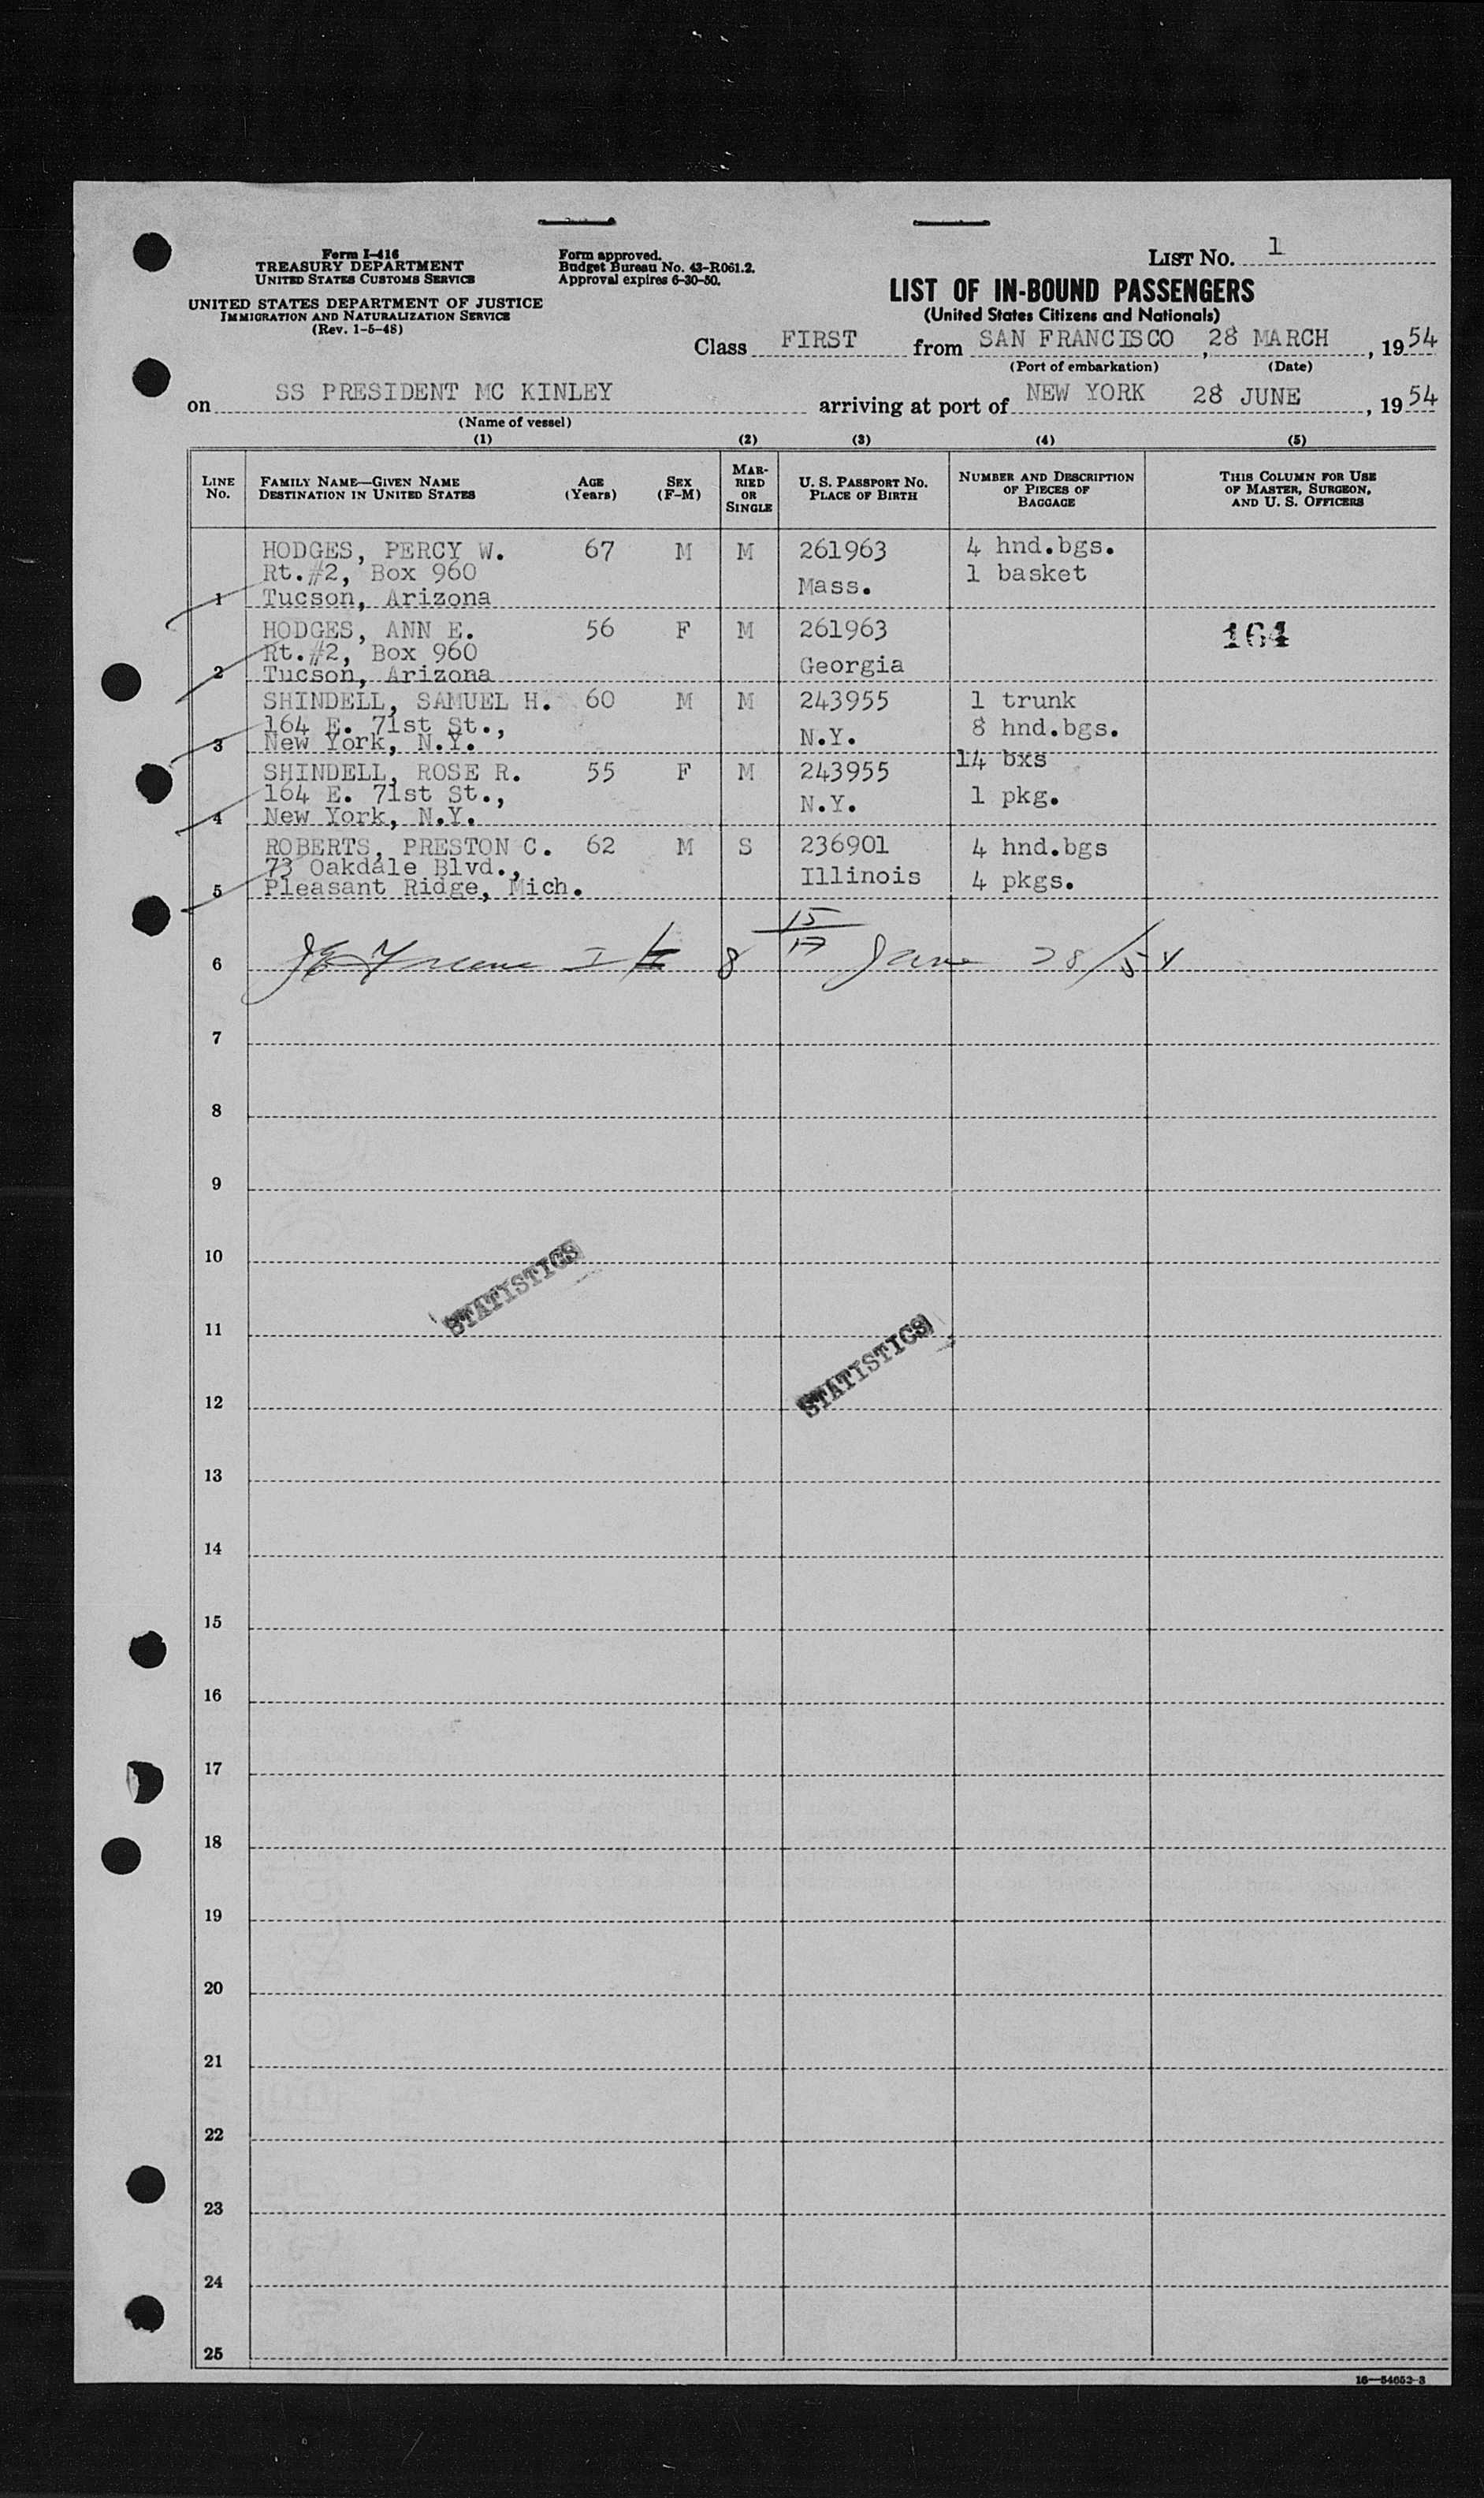 Form I-416
TREASURY DEPARTMENT
UNITED STATES CUSTOMS SERVICE
UNITED STATES DEPARTMENT OF JUSTICE
IMMIGRATION AND NATURALIZATION SERVICE
(Rev. 1-5-48)
Form approved.
Budget Bureau No. 43-R061.2.
Approval expires 6-30-50.
LIST NO. 1
LIST OF IN-BOUND PASSENGERS
(United States Citizens and Nationals)
Class FIRST from SAN FRANCISCO , 28 MARCH , 1954
(Port of embarkation) (Date)
on SS PRESIDENT MC KINLEY arriving at port of NEW YORK 28 JUNE , 1954
(Name of vessel)
(1) (2) (3) (4) (5)
LINE NO. FAMILY NAME—GIVEN NAME DESTINATION IN UNITED STATES AGE (Years) SEX (F-M) MARRIED OR SINGLE U. S. PASSPORT NO. PLACE OF BIRTH NUMBER AND DESCRIPTION OF PIECES OF BAGGAGE THIS COLUMN FOR USE OF MASTER, SURGEON, AND U. S. OFFICERS
HODGES, PERCY W. 67 M M 261963 4 hnd.bgs.
Rt.#2, Box 960 Mass. 1 basket
1 Tucson, Arizona
HODGES, ANN E. 56 F M 261963 164
Rt.#2, Box 960 Georgia
2 Tucson, Arizona
SHINDELL, SAMUEL H. 60 M M 243955 1 trunk
164 E. 71st St., N.Y. 8 hnd.bgs.
3 New York, N.Y.
14 bxs
SHINDELL, ROSE R. 55 F M 243955
164 E. 71st St., N.Y. 1 pkg.
4 New York, N.Y.
ROBERTS, PRESTON C. 62 M S 236901 4 hnd.bgs
73 Oakdale Blvd., Illinois 4 pkgs.
5 Pleasant Ridge, Mich.
15
17
6 8 June 28/54
7
8
9
10
STATISTICS
11
STATISTICS
12
13
14
15
16
17
18
19
20
21
22
23
24
25
16—54652-3